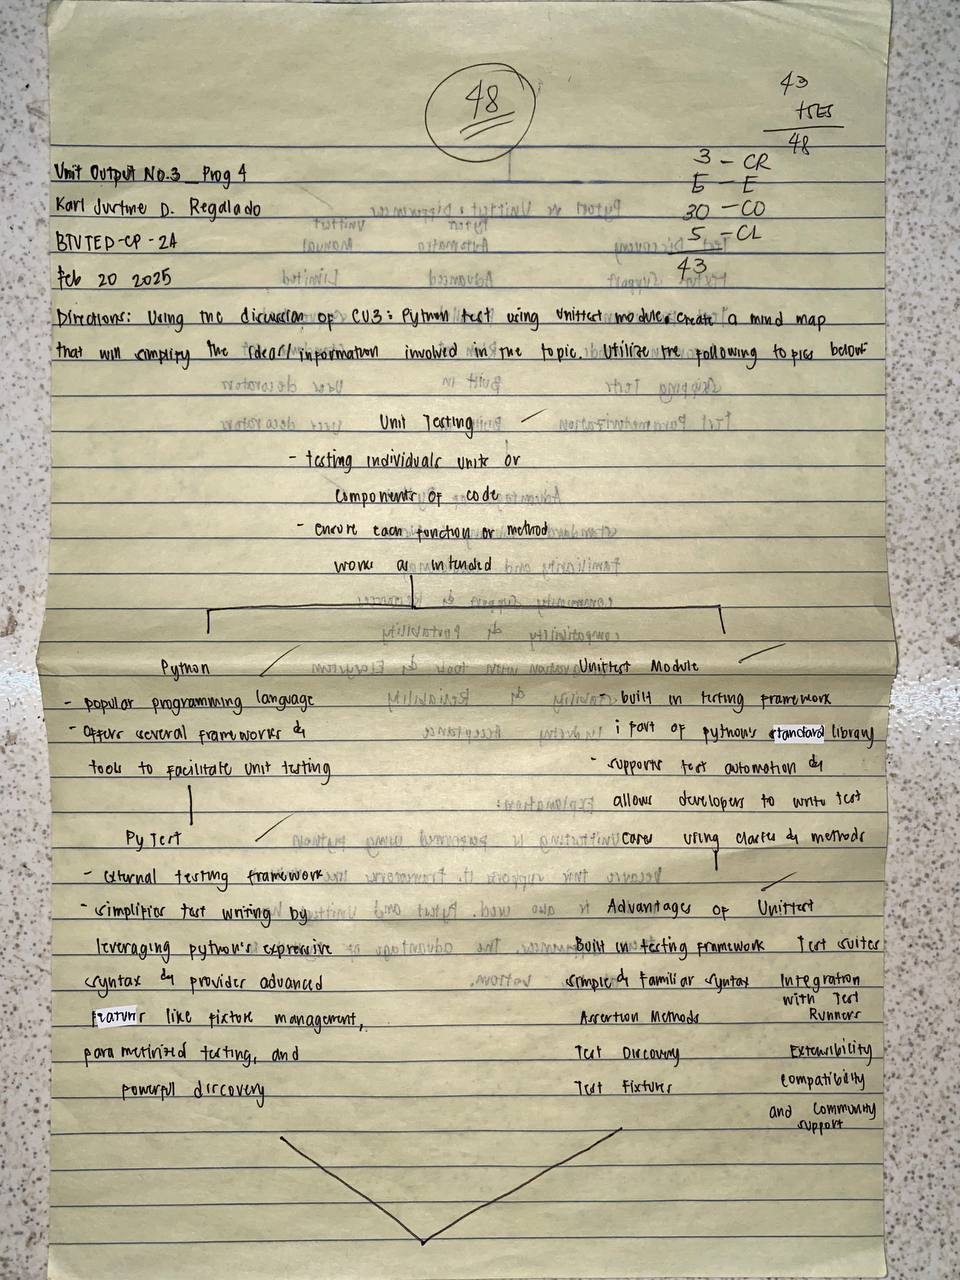 48
43
+5ES
48
3 - CR
5 - E
30 - CO
5 - CL
43
Unit Output No.3_Prog 4
Karl Justine D. Regalado
BTVTED-CP-2A
Feb 20 2025
Directions: Using the discussion of CU3: Python test using unittest module. create a mind map
that will simplify the ideas/information involved in the topic. Utilize the following topics below
Unit Testing
- testing individuals units or
components of code
- ensure each function or method
works as intended
Python
- popular programming language
- offers several frameworks &
tools to facilitate unit testing
Py Test
- external testing framework
- simplifies test writing by
leveraging python's expressive
syntax & provides advanced
features like fixture management,
parametirized testing, and
powerful discovery
Unittest Module
- built in testing framework
i part of python's standard library
- supports test automation &
allows developers to write test
cases using classes & methods
Advantages of Unittest
Built in testing framework
simple & familiar syntax
Assertion Methods
Test Discovery
Test Fixtures
Test suites
Integration
with Test
Runners
Extensibility
compatibility
and community
support